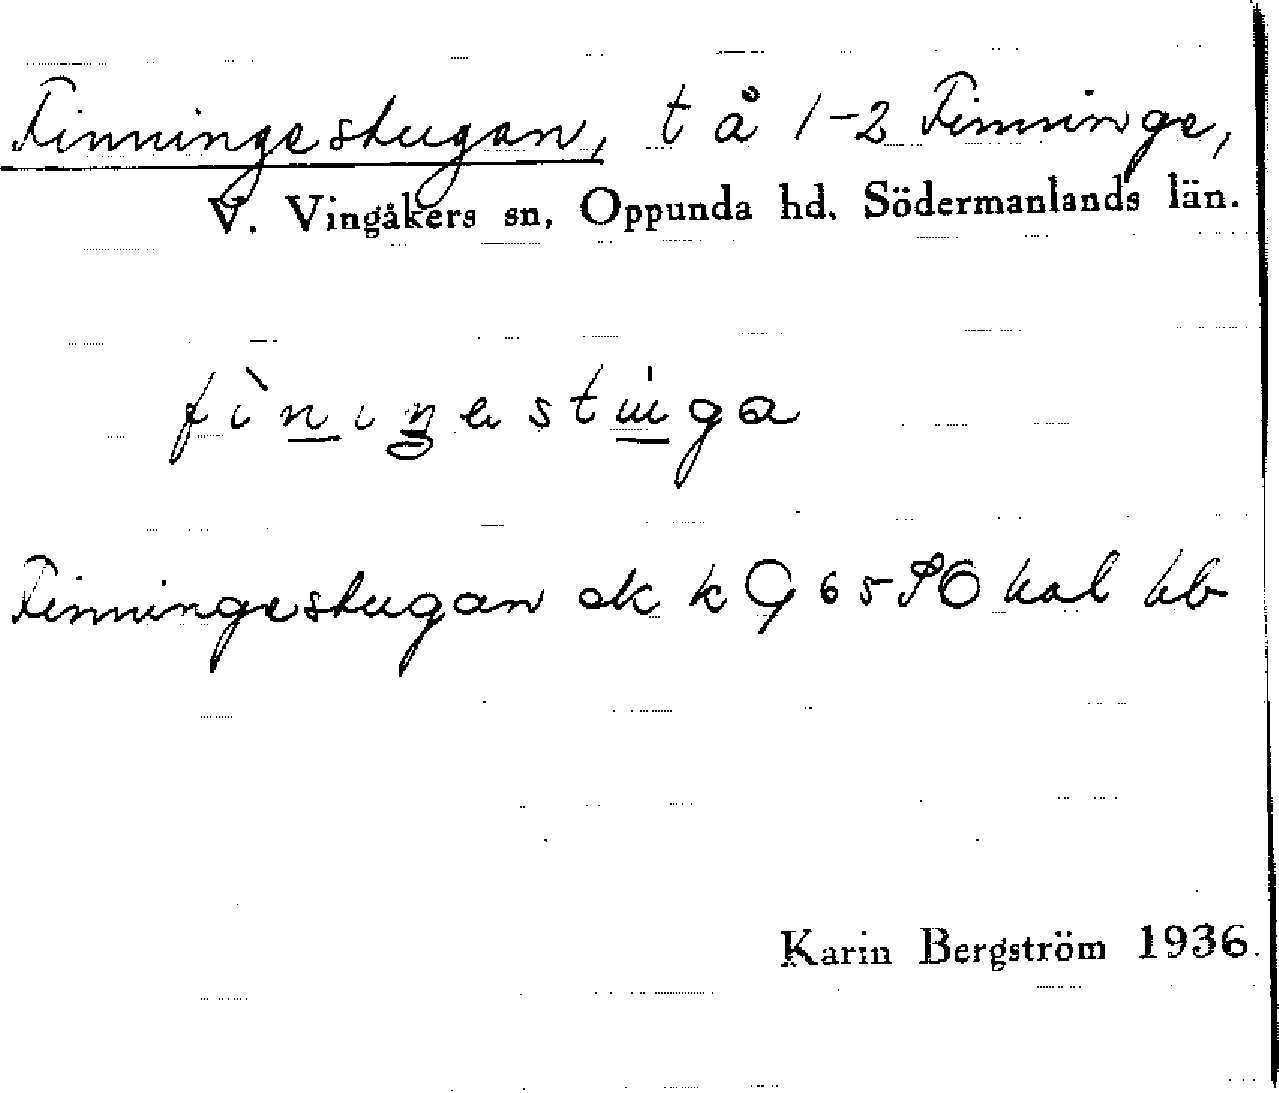 Finningestugan, t å 1-2 Finninge,
V. Vingåkers sn, Oppunda hd. Södermanlands län.
fìnıŋestu̇ga
Finningestugan ek k 65 SO kal hb
Karin Bergström 1936.